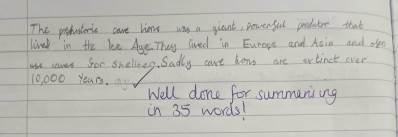 The prehistoric cave lions was a giant, powerful predator that
lived in the Ice Age. They lived in Europe and Asia and often
use caves for shelter. Sadly cave lions are extinct over
10,000 years.
Well done for summarising
in 35 words!